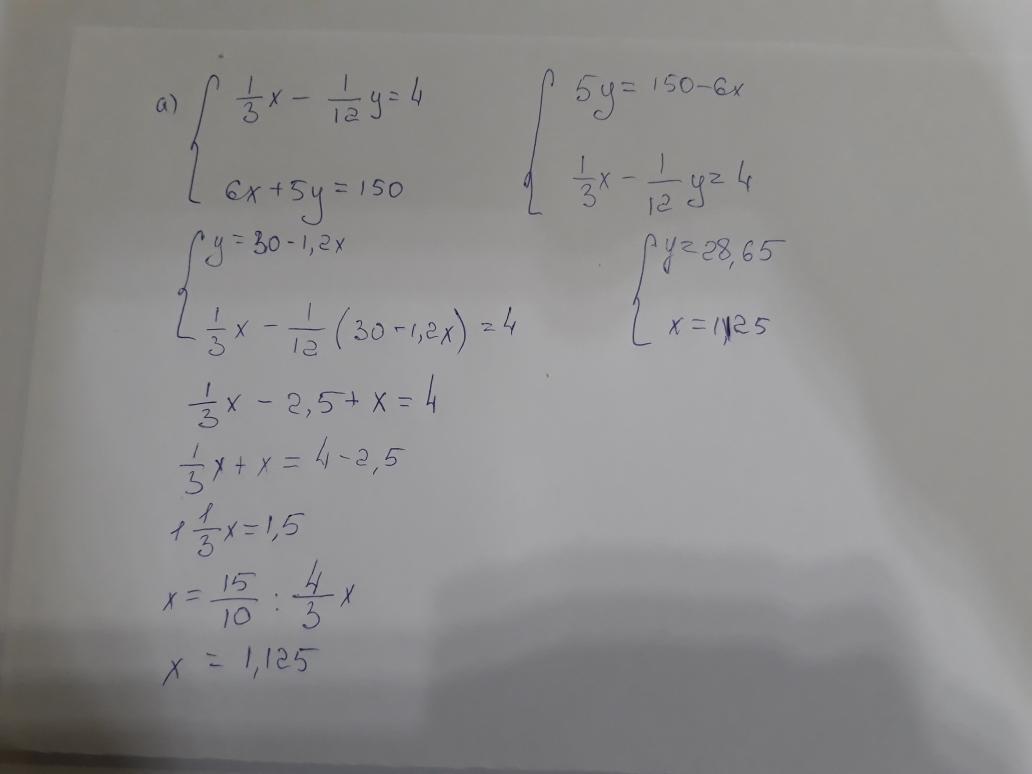 а) { 1/3 x - 1/12 y = 4
6x + 5y = 150
{ 5y = 150 - 6x
1/3 x - 1/12 y = 4
{ y = 30 - 1,2x
1/3 x - 1/12 (30 - 1,2x) = 4
{ y = 28,65
x = 1,125
1/3 x - 2,5 + x = 4
1/3 x + x = 4 - 2,5
1 1/3 x = 1,5
x = 15/10 : 4/3 x
x = 1,125